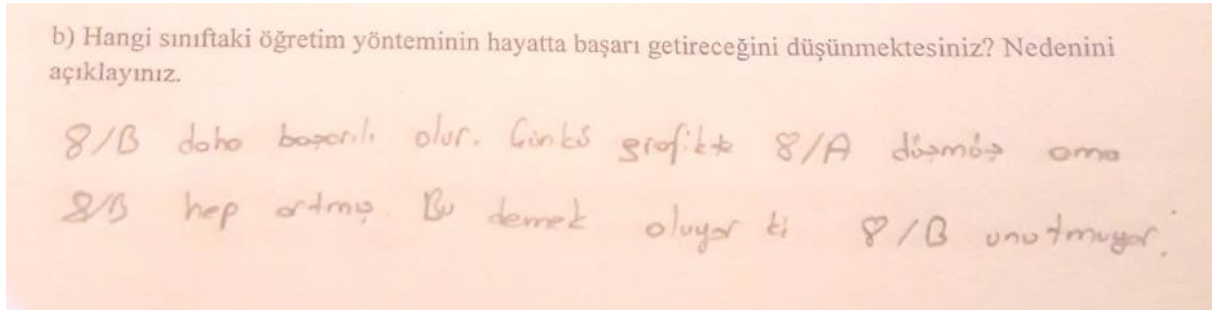 b) Hangi sınıftaki öğretim yönteminin hayatta başarı getireceğini düşünmektesiniz? Nedenini
açıklayınız.
8/B daha başarılı olur. Çünkü grafikte 8/A düşmüş ama
8/B hep artmış Bu demek oluyor ki 8/B unutmuyor.